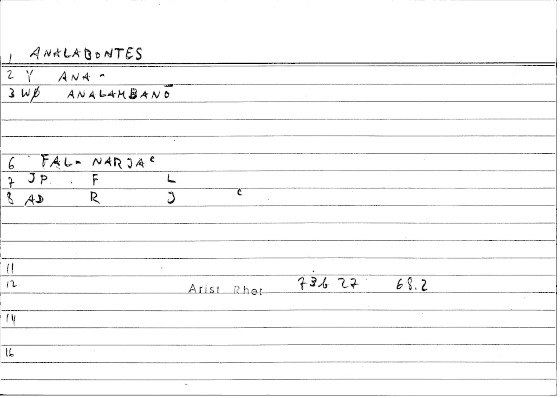 1 ANALABONTES
2 Y ANA-
3 WØ ANALAMBANŌ
6 FAL- NARJAᶜ
7 JP. F L
8 AD R J c
11
12 Arist Rhet 736 27 68.2
14
16